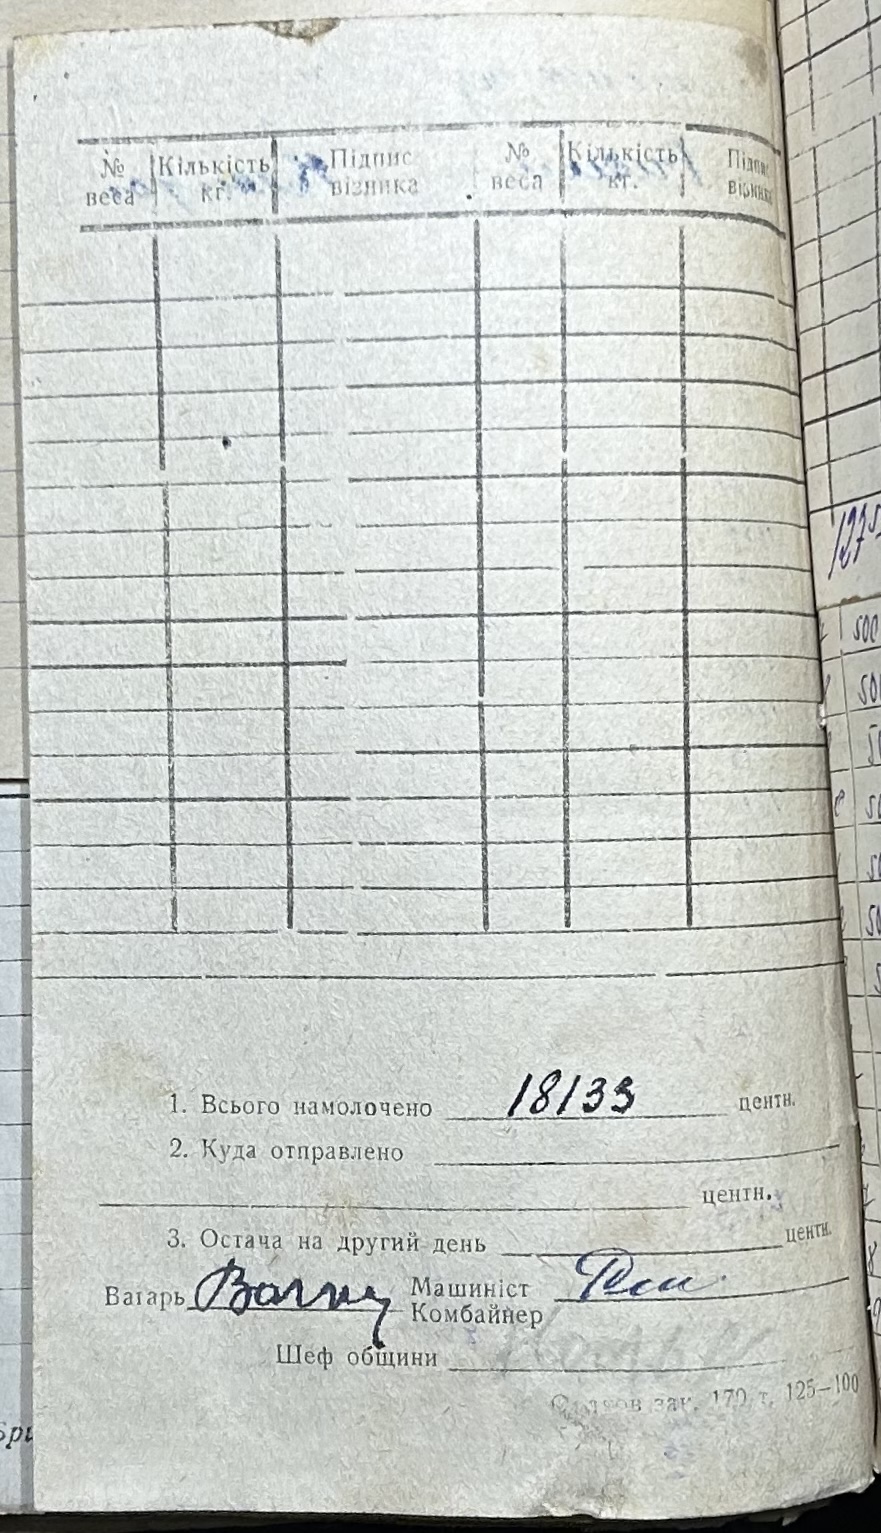 № веса Кількість кг. Підпис візника № веса Кількість кг. Підпис візника
1275
500
1. Всього намолочено 18133 центн.
2. Куда отправлено
центн.
3. Остача на другий день центн.
Вагарь Машиніст
Комбайнер
Шеф общини
зак. 170 т. 125—100